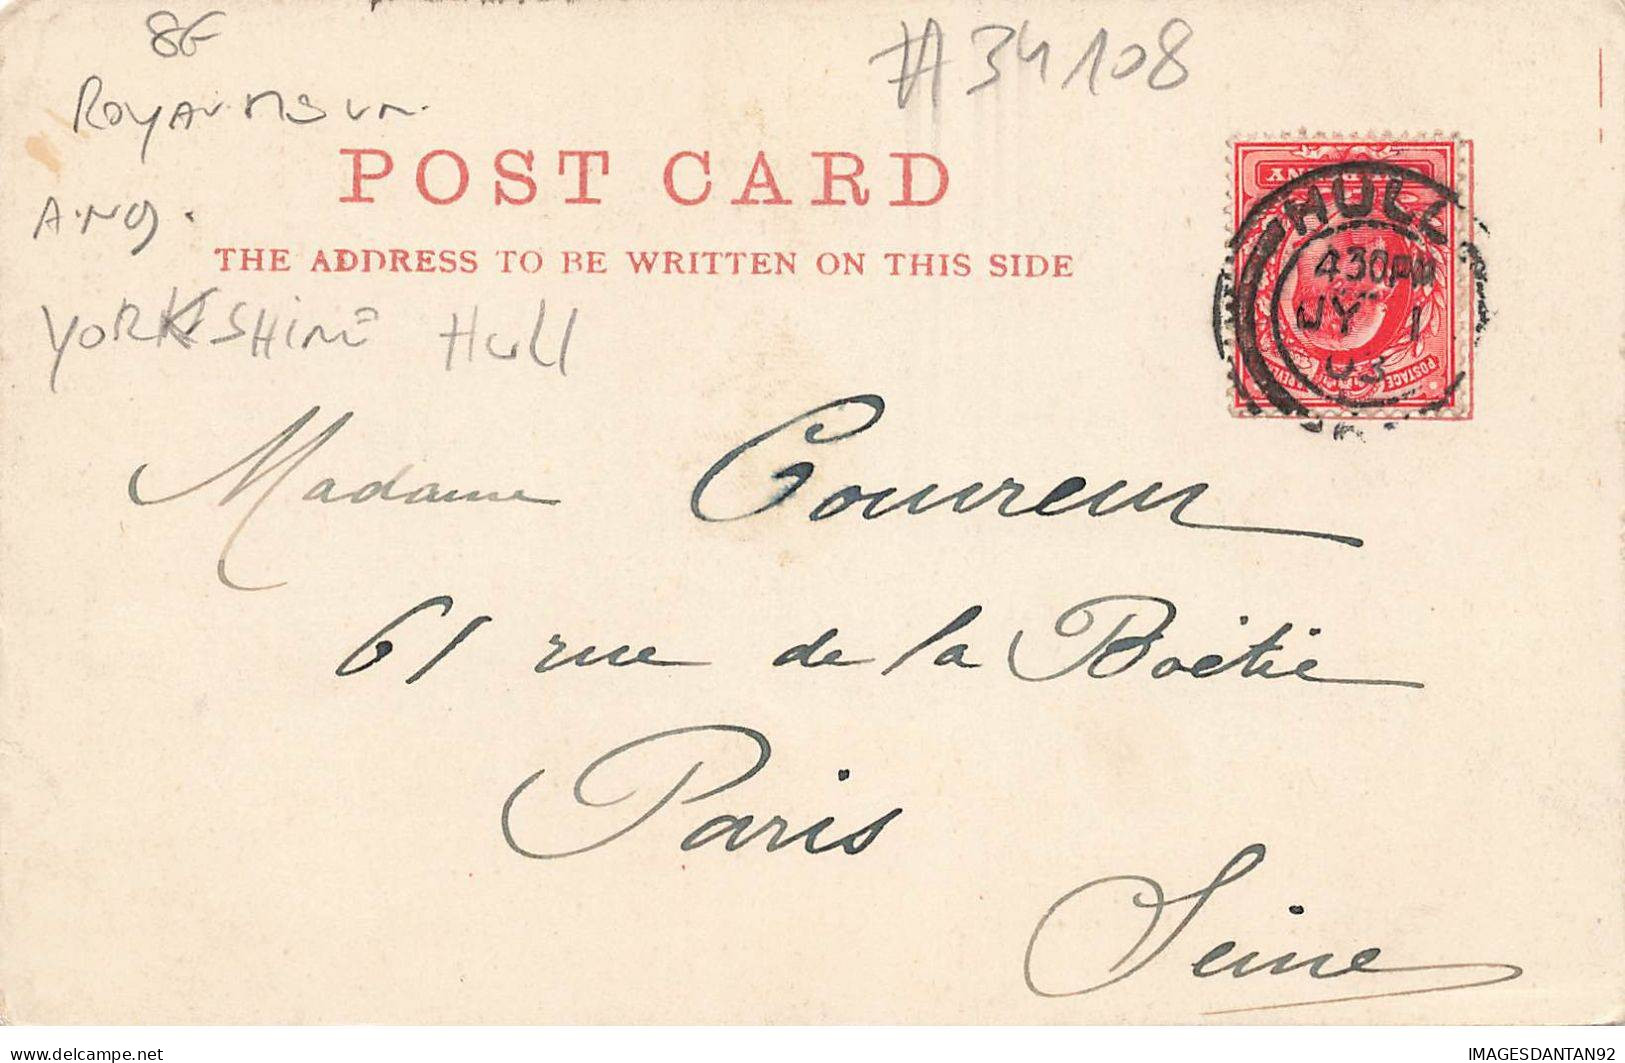 8€
#34108
ROYAUME UN.
POST CARD
ANG.
THE ADDRESS TO BE WRITTEN ON THIS SIDE
YORKSHIRE Hull
HULL
4 30 PM
JY 1
03
POSTAGE
Madame Coureur
61 rue de la Boëtie
Paris
Seine
www.delcampe.net
IMAGESDANTAN92